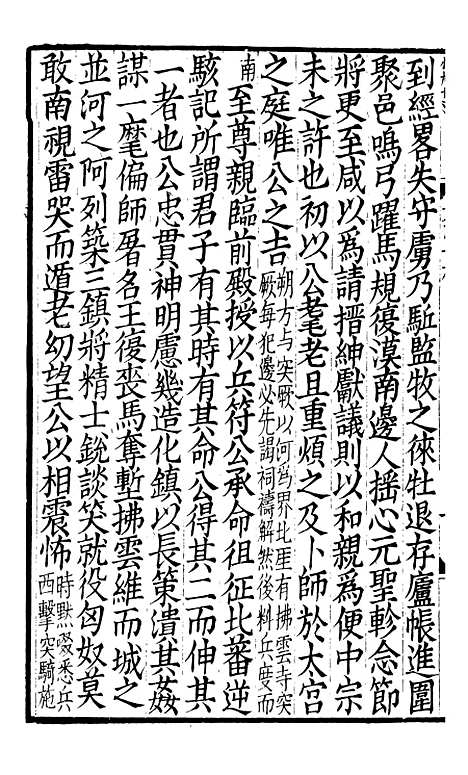 到經畧失守虜乃駈監牧之徠牡退存廬帳進圍
聚邑鳴弓躍馬規復漠南邊人揺心元聖軫念節
將更至咸以爲請搢紳獻議則以和親爲便中宗
未之許也初以公耄老且重煩之及卜師於太宮
之庭唯公之吉朔方与突厥以河爲界北厓有拂雲寺突厥每犯邊必先謁祠禱解然後料兵度而
南至尊親臨前殿授以兵符公承命徂征比蕃逆
駭記所謂君子有其時有其命公得其二而伸其
一者也公忠貫神明慮幾造化鎮以長策潰其姦
謀一麾偏師屠名王復喪馬奪塹拂雲維而城之
並河之阿列築三鎮將精士銳談笑就役匈奴莫
敢南視雷哭而遁老幼望公以相震怖時默啜悉兵西擊突騎施